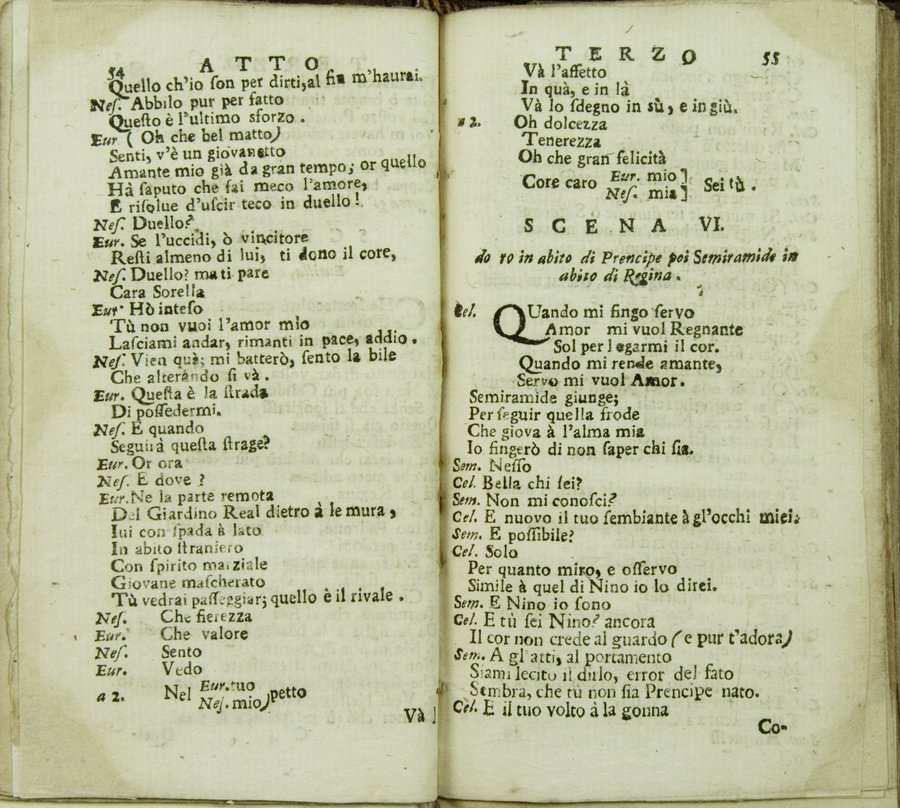 54 ATTO
Quello ch'io son per dirti, al fin m'haurai.
Nes. Abbilo pur per fatto
Questo è l'ultimo sforzo.
Eur ( Oh che bel matto)
Senti, v'è un giovanetto
Amante mio già da gran tempo; or quello
Hà saputo che fai meco l'amore,
E risolue d'uscir teco in duello!
Nes. Duello?
Eur. Se l'uccidi, ò vincitore
Resti almeno di lui, ti dono il core,
Nes. Duello? ma ti pare
Cara Sorella
Eur. Hò inteso
Tù non vuoi l'amor mio
Lasciami andar, rimanti in pace, addio.
Nes. Vien quà; mi batterò, sento la bile
Che alterando si và.
Eur. Questa è la strada
Di possedermi.
Nes. E quando
Seguirà questa strage?
Eur. Or ora
Nes. E dove?
Eur. Ne la parte remota
Del Giardino Real dietro à le mura,
Iui con spada à lato
In abito straniero
Con spirito marziale
Giovane mascherato
Tù vedrai passeggiar; quello è il rivale.
Nes. Che fierezza
Eur. Che valore
Nes. Sento
Eur. Vedo
a 2. Nel Eur. tuo
Nes. mio) petto
Và
TERZO 55
Và l'affetto
In quà, e in là
Và lo sdegno in sù, e in giù.
a 2. Oh dolcezza
Tenerezza
Oh che gran felicità
Core caro Eur. mio]
Nes. mia] Sei tù.
SCENA VI.
do ro in abito di Prencipe poi Semiramide in
abito di Regina.
Cel. QUando mi fingo servo
Amor mi vuol Regnante
Sol per legarmi il cor.
Quando mi rende amante,
Servo mi vuol Amor.
Semiramide giunge;
Per seguir quella frode
Che giova à l'alma mia
Io fingerò di non saper chi sia.
Sem. Nesso
Cel. Bella chi sei?
Sem. Non mi conosci?
Cel. E nuovo il tuo sembiante à gl'occhi miei.
Sem. E possibile?
Cel. Solo
Per quanto miro, e osservo
Simile à quel di Nino io lo direi.
Sem. E Nino io sono
Cel. E tù sei Nino? ancora
Il cor non crede al guardo (e pur t'adora)
Sem. A gl'atti, al portamento
Siami lecito il dirlo, error del fato
Sembra, che tù non sia Prencipe nato.
Cel. E il tuo volto à la gonna
Co-